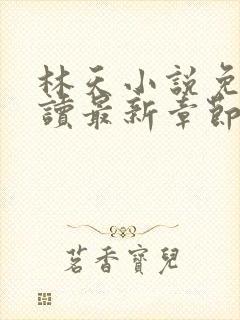 林天小說免
讀最新章節
茗香寶兒